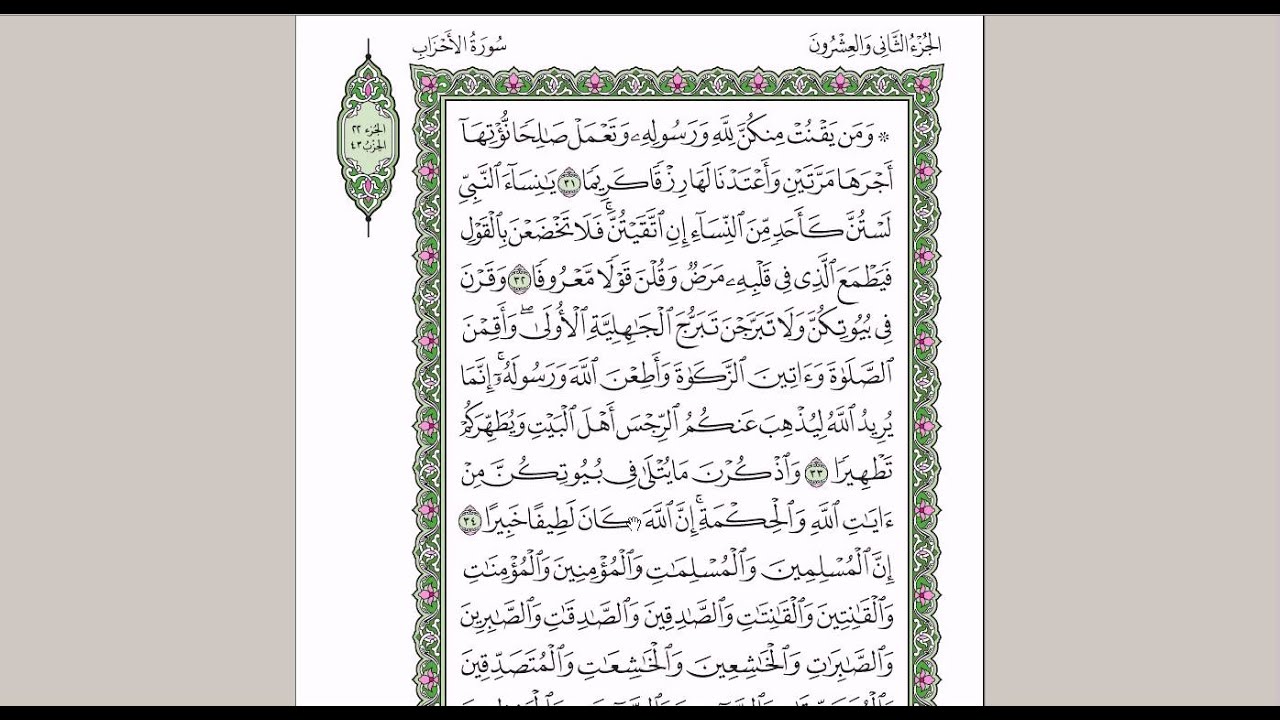 الجُزْءُ الثَّانِي وَالعِشْرُونَ
سُورَةُ الأَحْزَابِ
الجزء ٢٢
الحزب ٤٣
۞ وَمَن يَقْنُتْ مِنكُنَّ لِلَّهِ وَرَسُولِهِۦ وَتَعْمَلْ صَٰلِحًا نُّؤْتِهَآ
أَجْرَهَا مَرَّتَيْنِ وَأَعْتَدْنَا لَهَا رِزْقًا كَرِيمًا ٣١ يَٰنِسَآءَ ٱلنَّبِيِّ
لَسْتُنَّ كَأَحَدٍ مِّنَ ٱلنِّسَآءِ إِنِ ٱتَّقَيْتُنَّۚ فَلَا تَخْضَعْنَ بِٱلْقَوْلِ
فَيَطْمَعَ ٱلَّذِى فِى قَلْبِهِۦ مَرَضٌ وَقُلْنَ قَوْلًا مَّعْرُوفًا ٣٢ وَقَرْنَ
فِى بُيُوتِكُنَّ وَلَا تَبَرَّجْنَ تَبَرُّجَ ٱلْجَٰهِلِيَّةِ ٱلْأُولَىٰۖ وَأَقِمْنَ
ٱلصَّلَوٰةَ وَءَاتِينَ ٱلزَّكَوٰةَ وَأَطِعْنَ ٱللَّهَ وَرَسُولَهُۥٓۚ إِنَّمَا
يُرِيدُ ٱللَّهُ لِيُذْهِبَ عَنكُمُ ٱلرِّجْسَ أَهْلَ ٱلْبَيْتِ وَيُطَهِّرَكُمْ
تَطْهِيرًا ٣٣ وَٱذْكُرْنَ مَا يُتْلَىٰ فِى بُيُوتِكُنَّ مِنْ
ءَايَٰتِ ٱللَّهِ وَٱلْحِكْمَةِۚ إِنَّ ٱللَّهَ كَانَ لَطِيفًا خَبِيرًا ٣٤
إِنَّ ٱلْمُسْلِمِينَ وَٱلْمُسْلِمَٰتِ وَٱلْمُؤْمِنِينَ وَٱلْمُؤْمِنَٰتِ
وَٱلْقَٰنِتِينَ وَٱلْقَٰنِتَٰتِ وَٱلصَّٰدِقِينَ وَٱلصَّٰدِقَٰتِ وَٱلصَّٰبِرِينَ
وَٱلصَّٰبِرَٰتِ وَٱلْخَٰشِعِينَ وَٱلْخَٰشِعَٰتِ وَٱلْمُتَصَدِّقِينَ